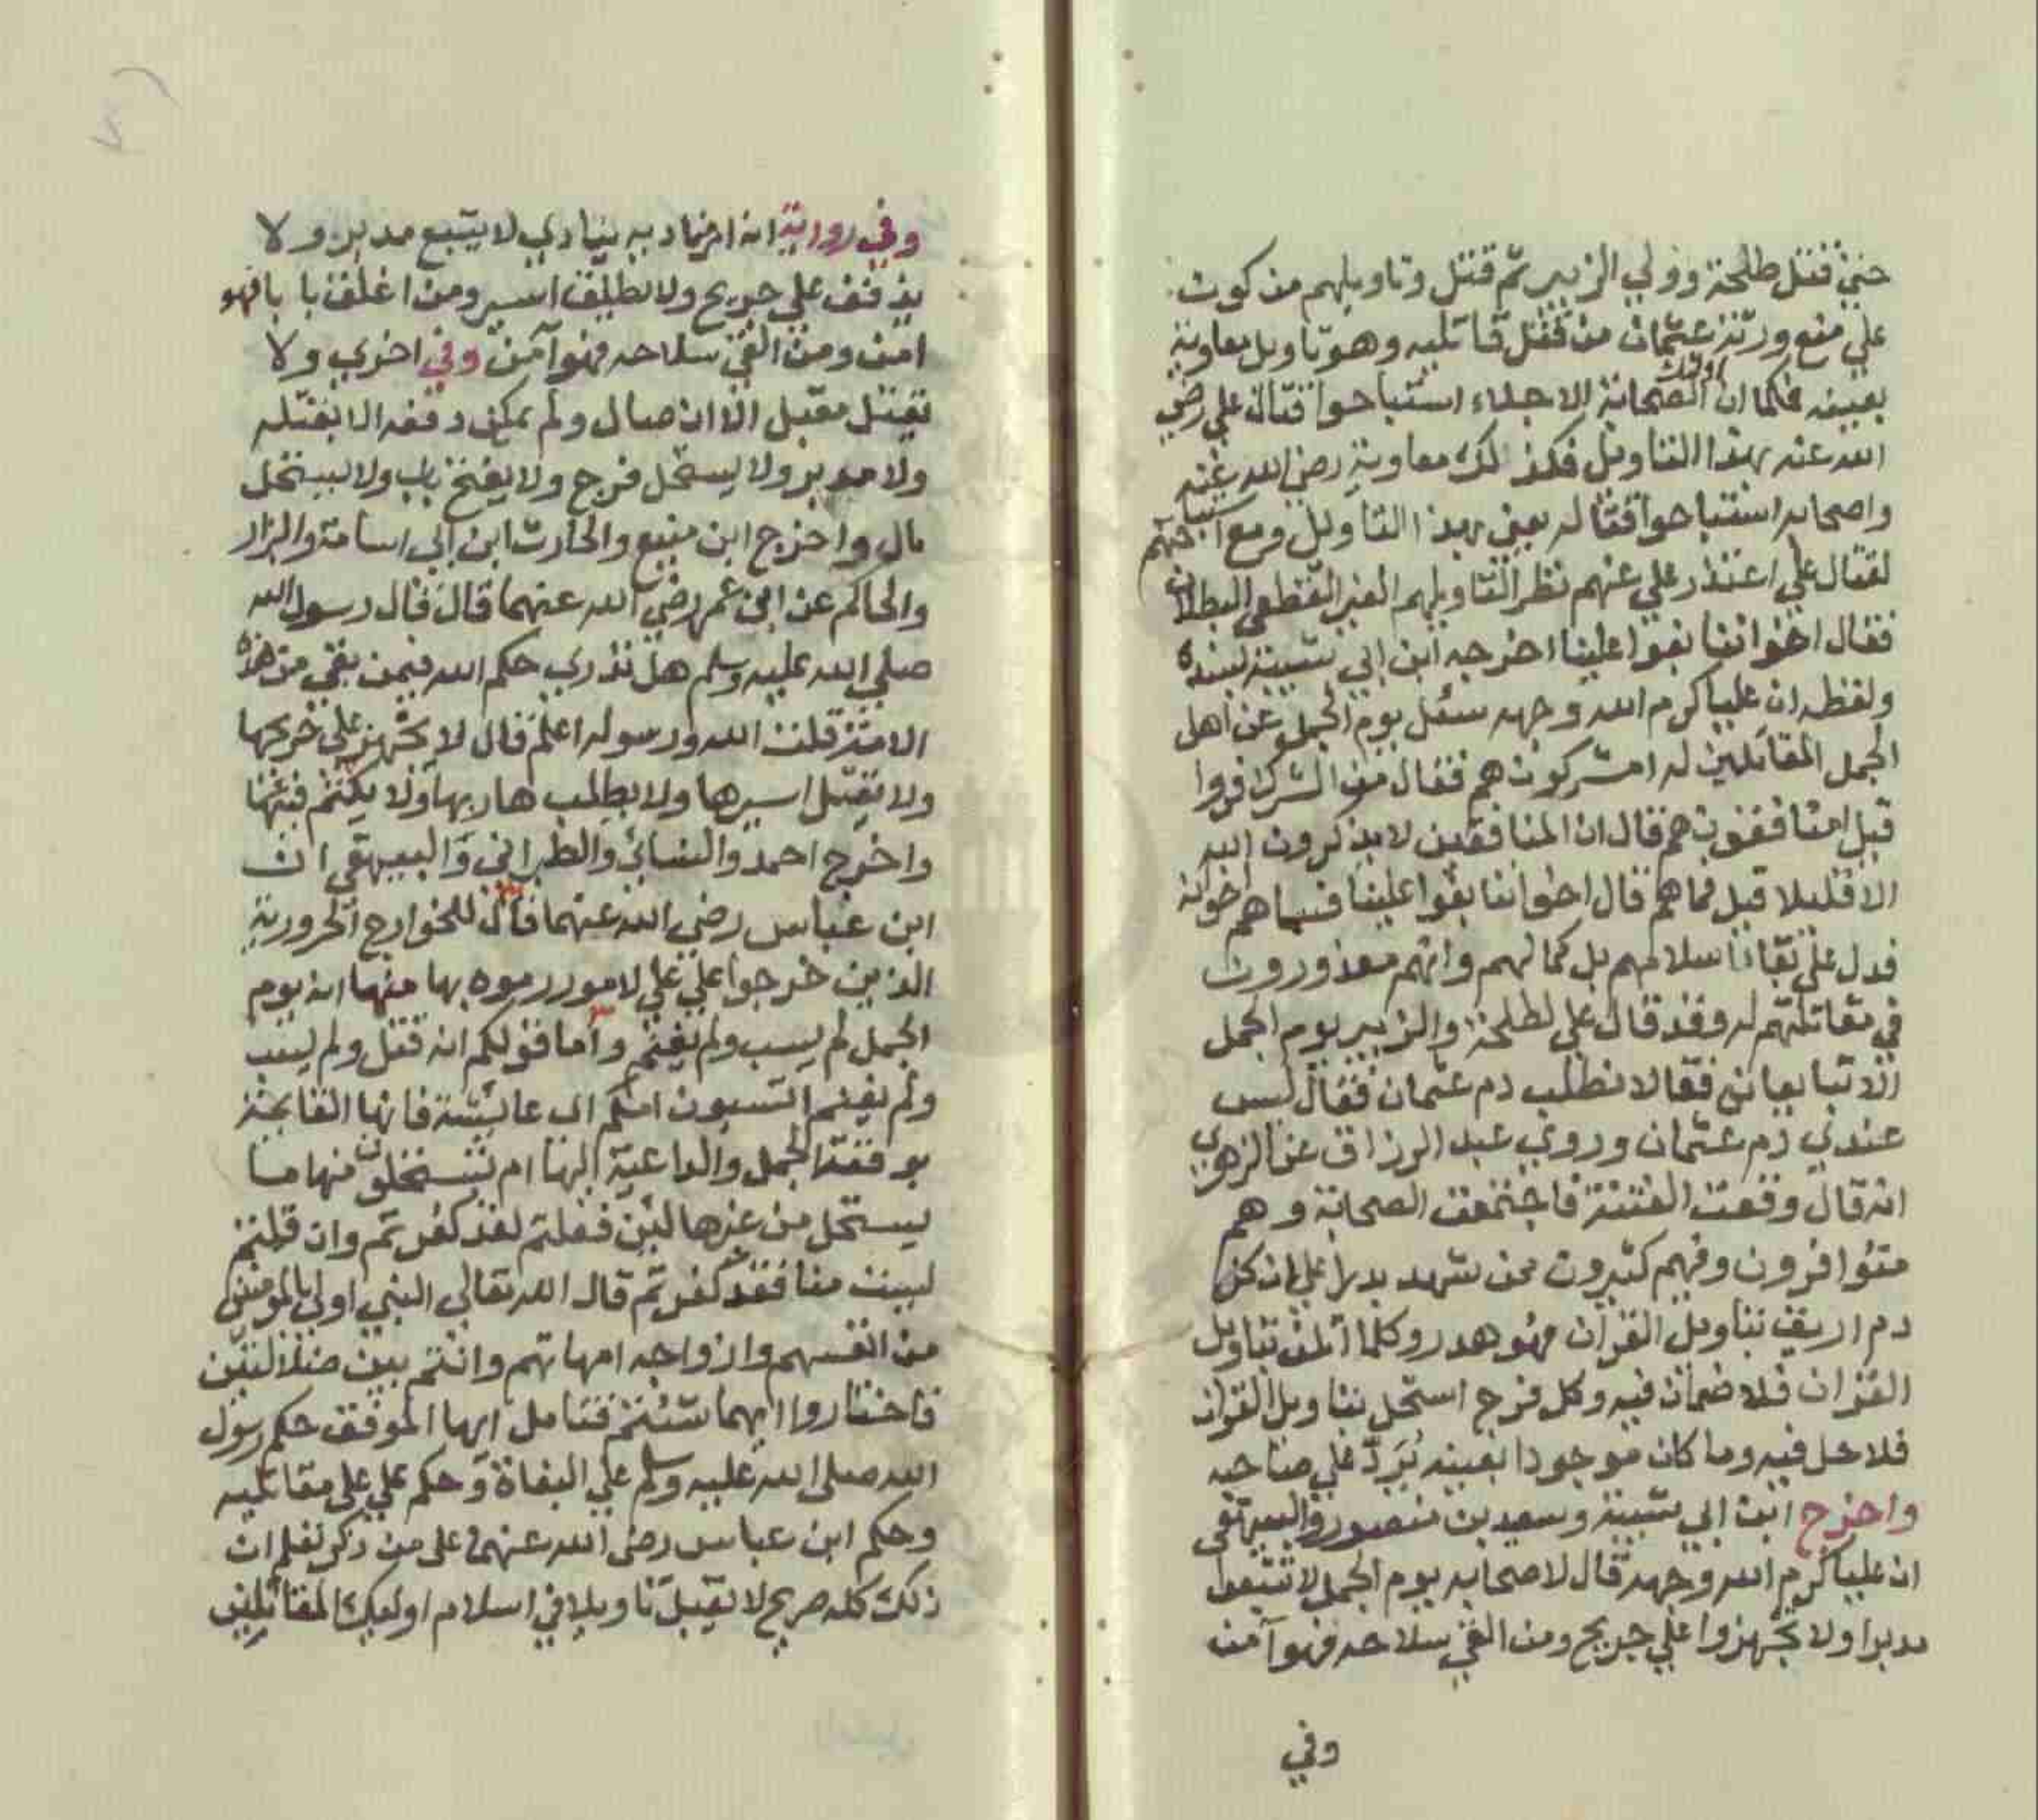 حتى قتل طلحة وولي الزبير ثم قتل وتاويلهم من كون
علي منع ورثة عثمان من قتل قاتليه وهو تاويل معاوية
بعينه فكما ان اولئك الصحابة الاجلاء استباحوا قتال علي رضي
الله عنه بهذا التاويل فكذلك معاوية رضي الله عنه
واصحابه استباحوا قتاله بعين بهذا التاويل ومع استباحتهم
لقتال علي اعتذر علي عنهم نظرا لتاويلهم الغير القطعي البطلان
فقال اخواننا بغوا علينا اخرجه ابن ابي شيبة بسنده
ولفظه ان عليا كرم الله وجهه سئل يوم الجمل عن اهل
الجمل المقاتلين له امشركون هم فقال من الشرك فروا
قيل امنافقون هم قال ان المنافقين لا يذكرون الله
الا قليلا قيل فما هم قال اخواننا بغوا علينا فسماهم اخوانه
فدل على بقاء اسلامهم بل كمالهم وانهم معذورون
في مقاتلتهم له وقد قال علي لطلحة والزبير يوم الجمل
الا تبايعاني فقالا نطلب دم عثمان فقال ليس
عندي دم عثمان وروي عبد الرزاق عن الزهري
انه قال وقعت الفتنة فاجتمعت الصحابة وهم
متوافرون وفيهم كثيرون ممن شهد بدرا على ان كل
دم اريق بتاويل القرآن فهو هدر وكلما اتلف بتاويل
القران فلا ضمان فيه وكل فرج استحل بتاويل القران
فلا حل فيه وما كان موجودا بعينه يُرَدّ علي صاحبه
واخرج ابن ابي شيبة وسعيد بن منصور والبيهقي
ان عليا كرم الله وجهه قال لاصحابه يوم الجمل لا تتبعوا
مدبرا ولا تجهزوا علي جريح ومن القي سلاحه فهو آمن
وفي
وفي رواية انه امر مناديه ينادي لا يتبع مدبر ولا
يذفف علي جريح ولا اسير ومن اغلق بابا فهو
امن ومن القي سلاحه فهو آمن وفي اخري ولا
يقتل مقبل الا ان صال ولم يمكن دفعه الا بقتله
ولا مدبر ولا يستحل فرج ولا يفتح باب ولا يستحل
مال واخرج ابن منيع والحارث ابن ابي اسامة والبزار
والحاكم عن ابن عمر رضي الله عنهما قال قال رسول الله
صلي الله عليه وسلم هل تدري حكم الله فيمن بقي من هذه
الامة قلت الله ورسوله اعلم قال لا يجهز علي جريحها
ولا يقتل اسيرها ولا يطلب هاربها ولا فيئها
واخرج احمد والنسائي والطبراني والبيهقي ان
ابن عباس رضي الله عنهما قال للخوارج الحرورية
الذين خرجوا علي علي لامور رموه بها منها انه يوم
الجمل لم يسب ولم يغنم واما قولكم انه قتل ولم يسب
ولم يغنم اتسبون امكم اي عائشة فانها القايمة
بوقعة الجمل والداعية اليها ام تستحلون منها ما
يستحل من غيرها لئن فعلتم لقد كفرتم وان قلتم
ليست منا فقد كفرتم قال الله تعالي النبي اولي بالمومنين
من انفسهم وازواجه امهاتهم وانتم بين ضلالتين
فاختاروا ايهما شئتم فتامل ايها الموفق حكم رسول
الله صلى الله عليه وسلم علي البغاة وحكم علي على مقاتليه
وحكم ابن عباس رضي الله عنهما على من ذكر تعلم ان
ذلك كله صريح لا يقبل تاويلا في اسلام اوليك المقاتلين